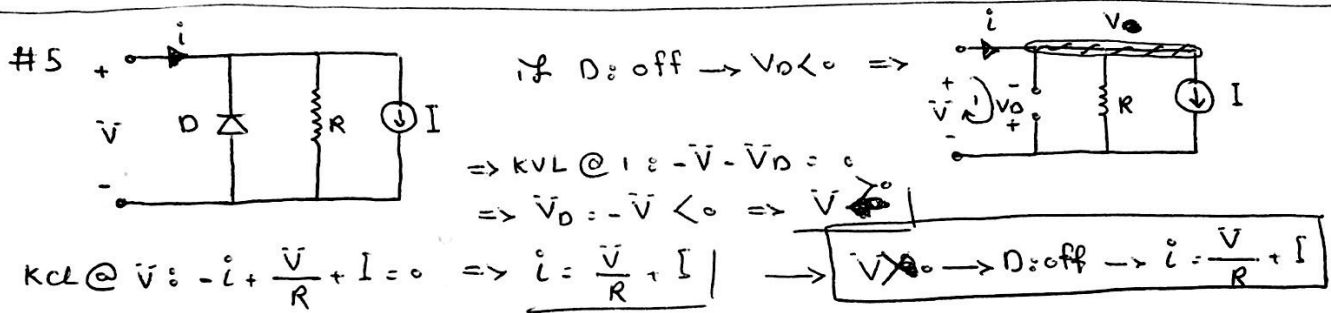 #5 + i V - D R I
if D: off → V_D < 0 =>
i V + V - 1 - V_D + R I
=> KVL @ 1 : -V - V_D = 0
=> V_D = -V < 0 => V > 0
KCL @ V : -i + V/R + I = 0 => i = V/R + I → V > 0 → D: off → i = V/R + I